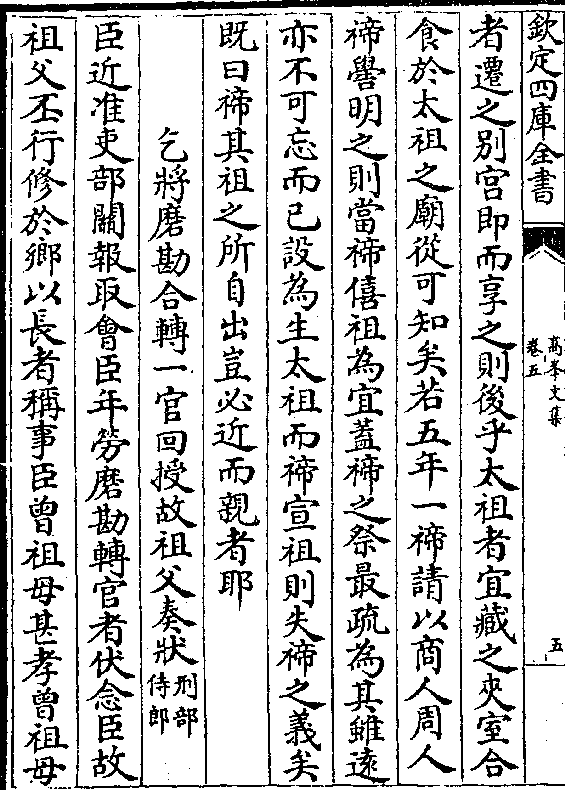 欽定四庫全書
高峯文集
卷五
五
者遷之别宫即而享之則後乎太祖者宜藏之夾室合
食於太祖之廟從可知矣若五年一禘請以商人周人
禘嚳明之則當禘僖祖為宜蓋禘之祭最疏為其雖逺
亦不可忘而已設為生太祖而禘宣祖則失禘之義矣
既曰禘其祖之所自出豈必近而親者耶
乞將磨勘合轉一官回授故祖父奏狀刑部侍郎
臣近准吏部關報取會臣年勞磨勘轉官者伏念臣故
祖父丕行修於鄉以長者稱事臣曾祖母甚孝曾祖母